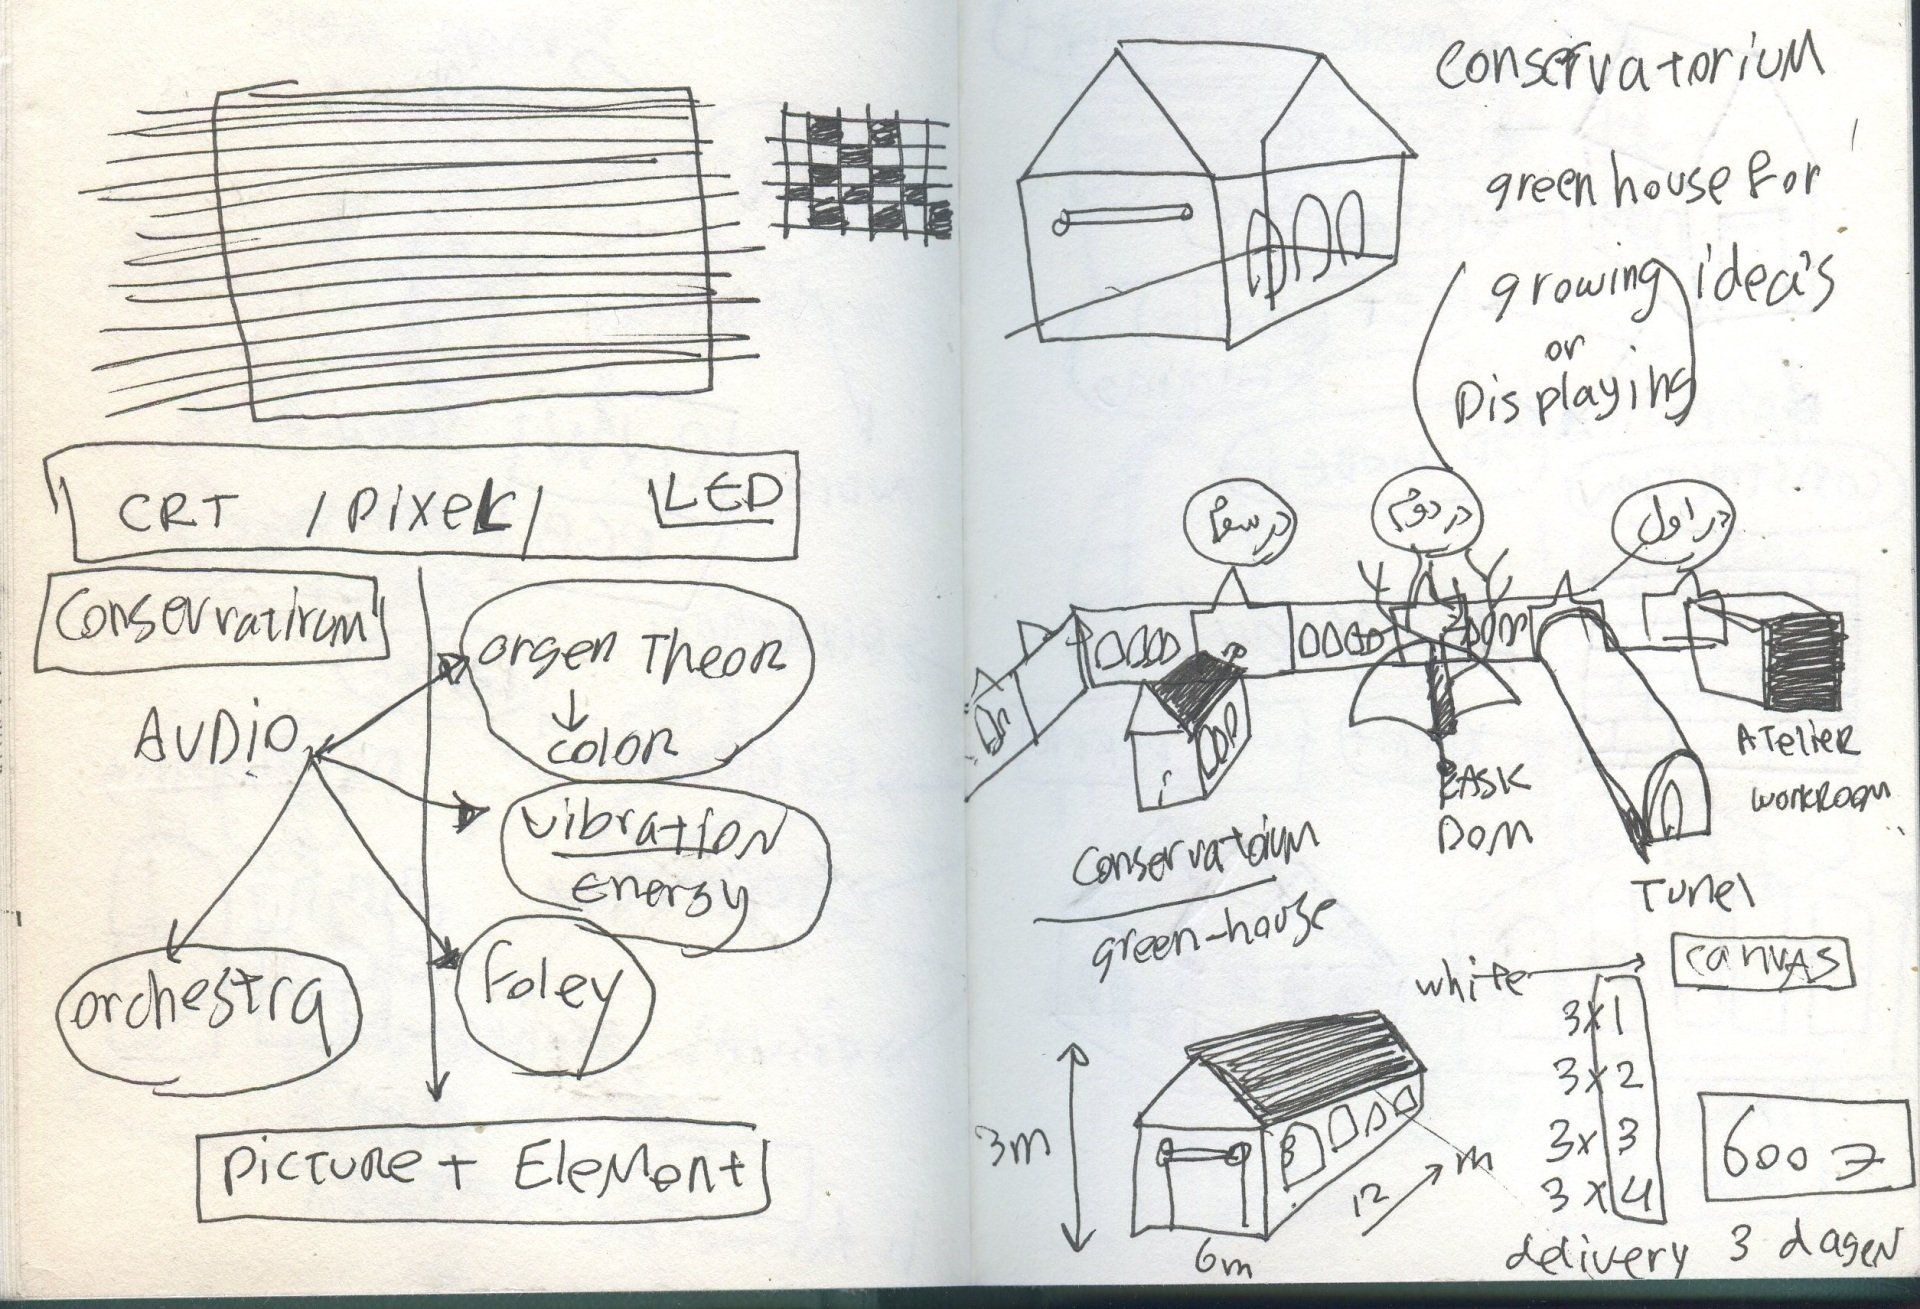 CRT / Pixel / LED
Conservatirum
AUDiO
orgen Theor
color
vibration
energy
orchestra
foley
Picture + Element
Conservatorium
green house for
growing idea's
or
Displaying
در سوم
در دوم
در اول
Atelier
workroom
DOM
Conservatorium
green-house
Tunel
white
canvas
3x1
3x2
3x3
3x4
3m
12 m
6m
600
delivery 3 dagen